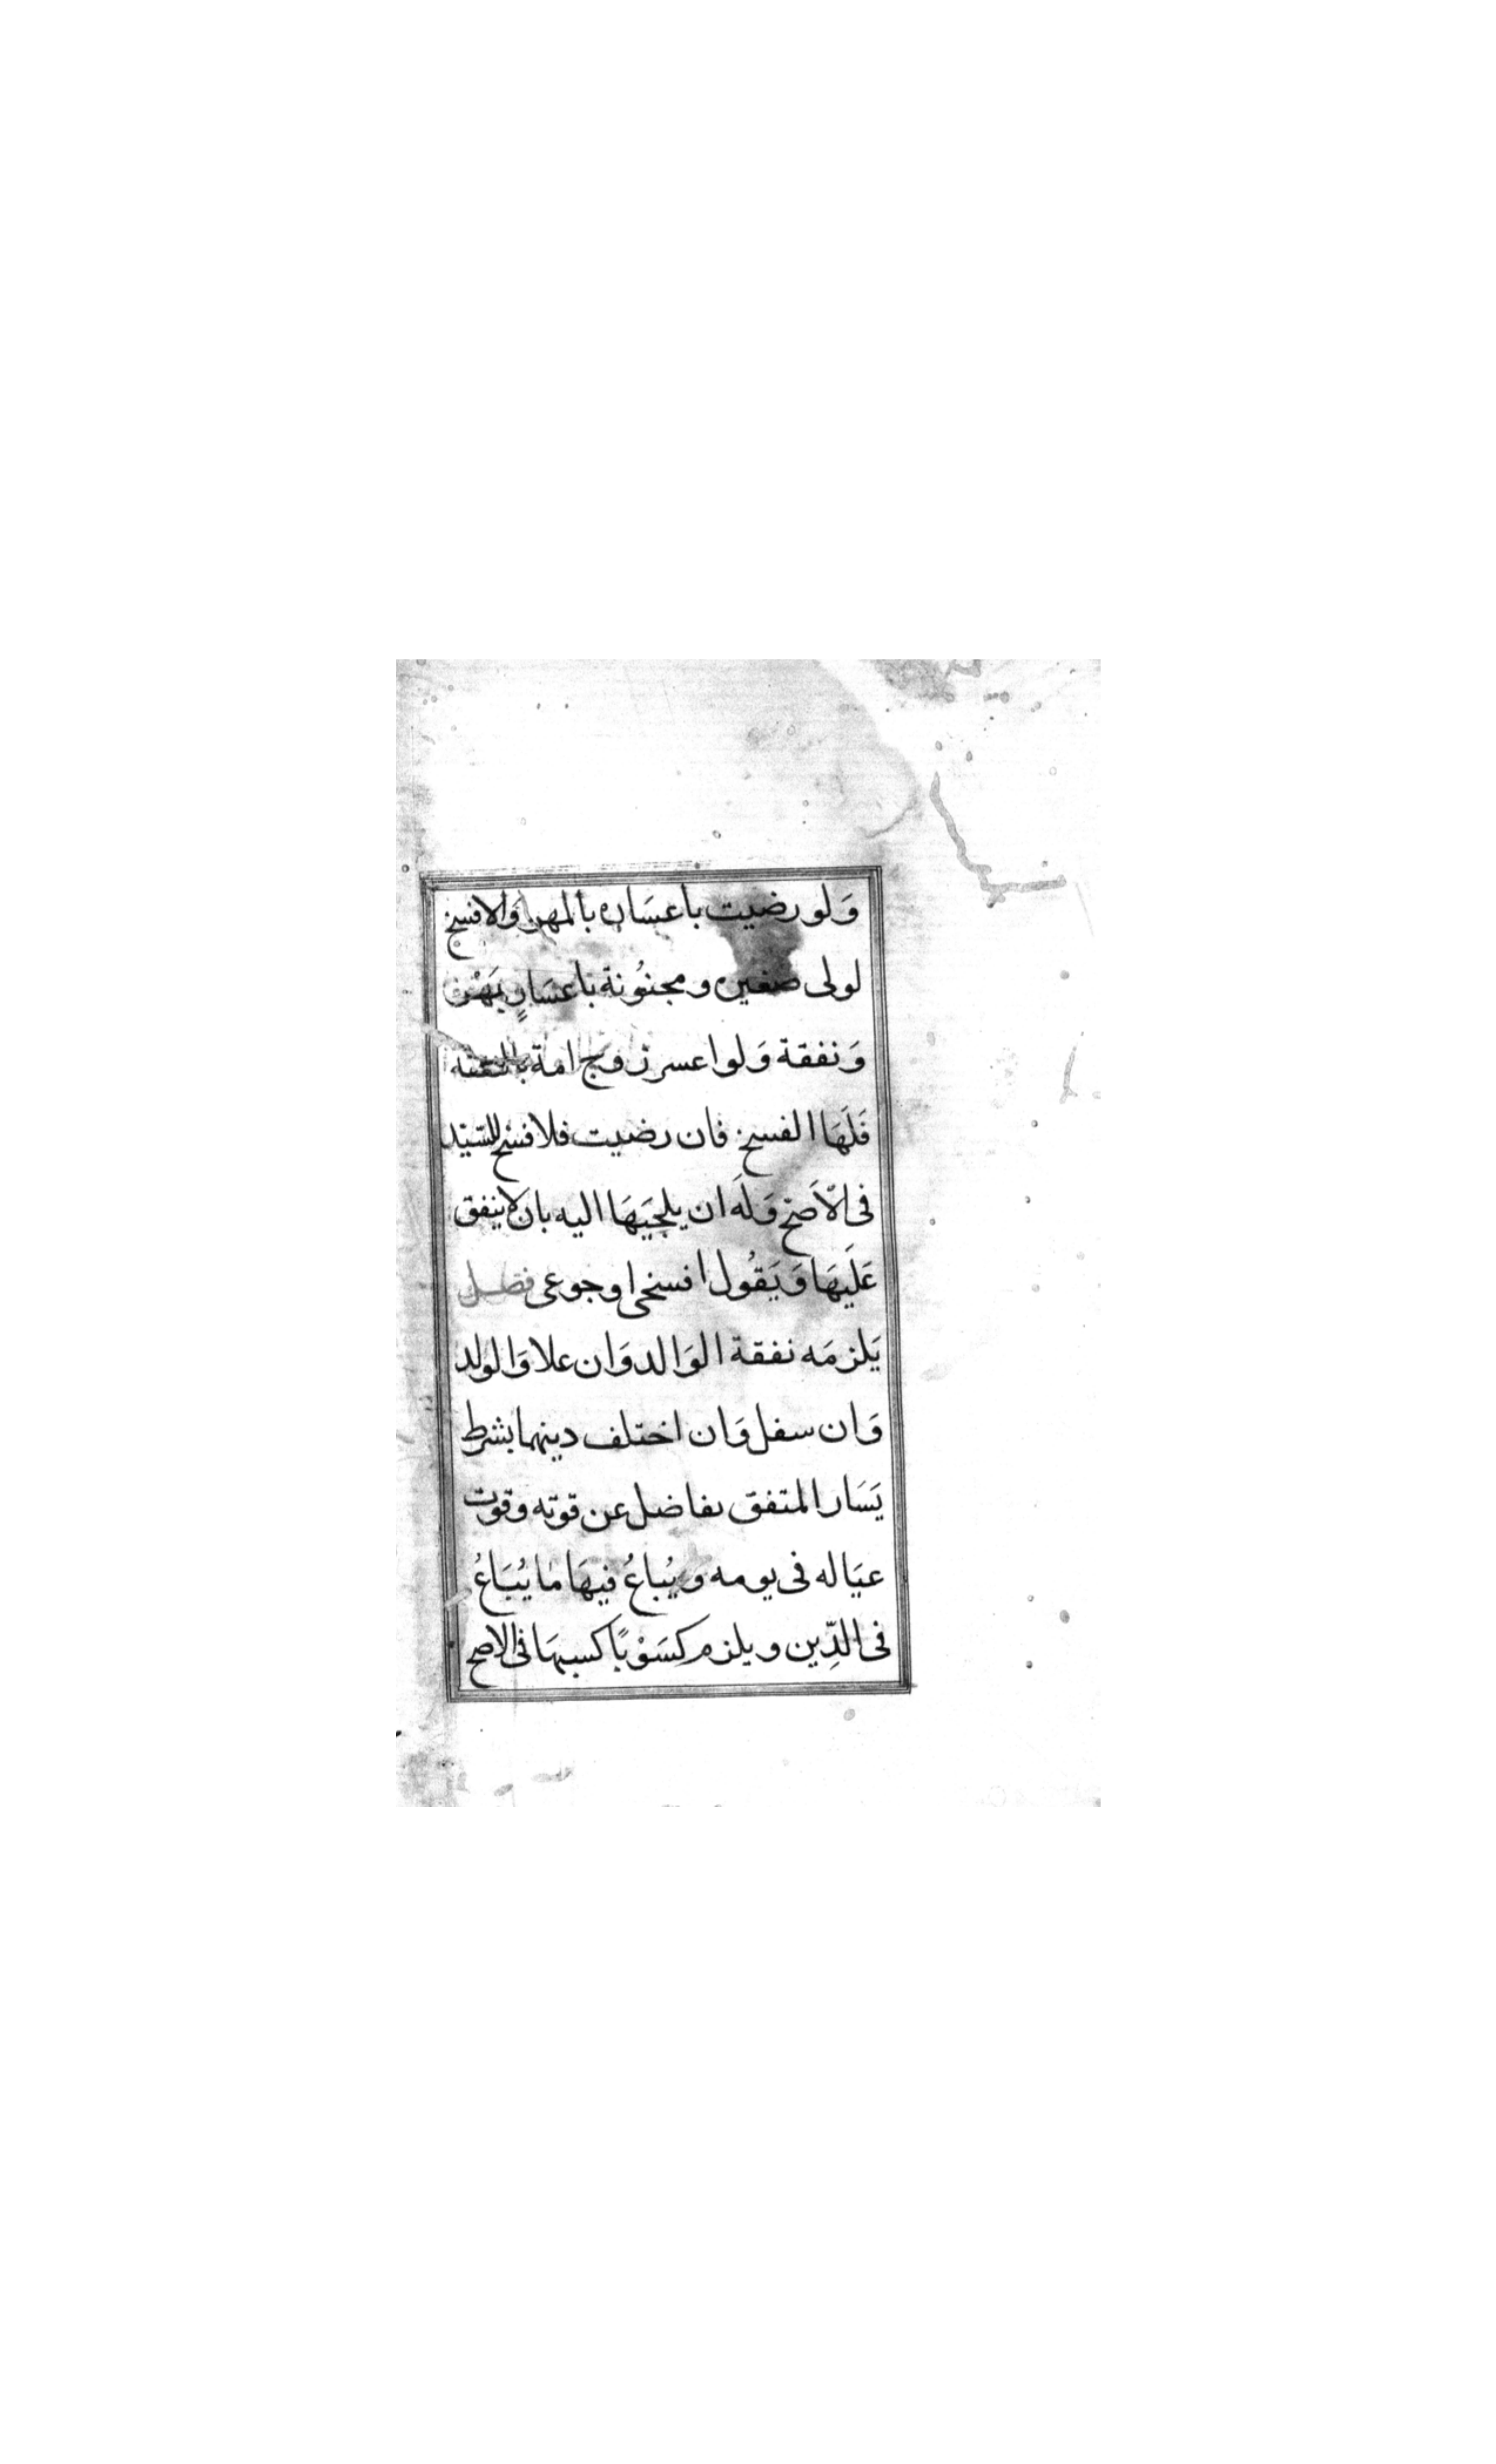 وَلو رضيت باعسَاره بالمهر وَلافسخ
لولى صغيره ومجنوُنة باعسَارٍ بمَهْر
وَنفقة وَلواعسر زوج امة بالنفقه
فَلَهَا الفسخ فان رضيت فلافسخ للسّيّد
فى الاَصَح وَلَه ان يلجيَهَا اليه بان لاينفق
عَلَيهَا وَيَقُول افسخى اوجوعى فصل
يَلزمَه نفقة الوَالد وَان علا وَالولد
وَان سفل وَان اختلف دينهما بشرط
يَسَار المتفق بفاضل عن قوته وقوت
عيَاله فى يومه وَيُباعُ فيهَا مَا يُبَاعُ
فى الدِّين ويلزم كسَوْبًا كسبهَا فى الاصح